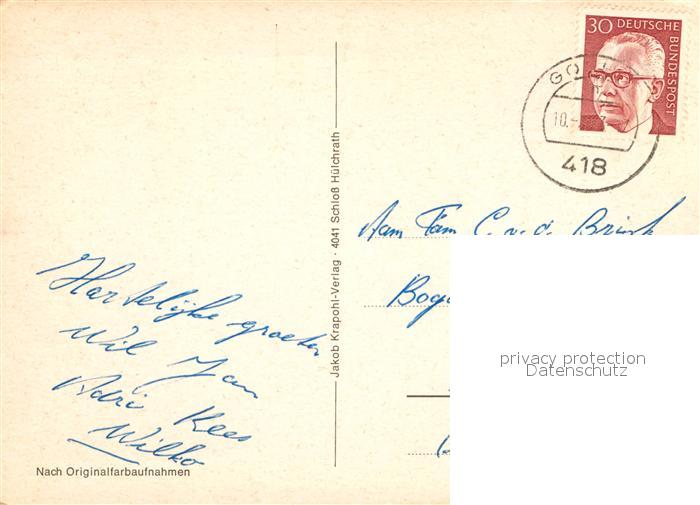 30 DEUTSCHE
BUNDESPOST
GO
10.
418
Aan Fam C. v. d. Brink
Bog
Hartelijke groeten
Wil Jan
Adri Kees
Wilko
Jakob Krapohl-Verlag · 4041 Schloß Hülchrath
privacy protection
Datenschutz
Nach Originalfarbaufnahmen